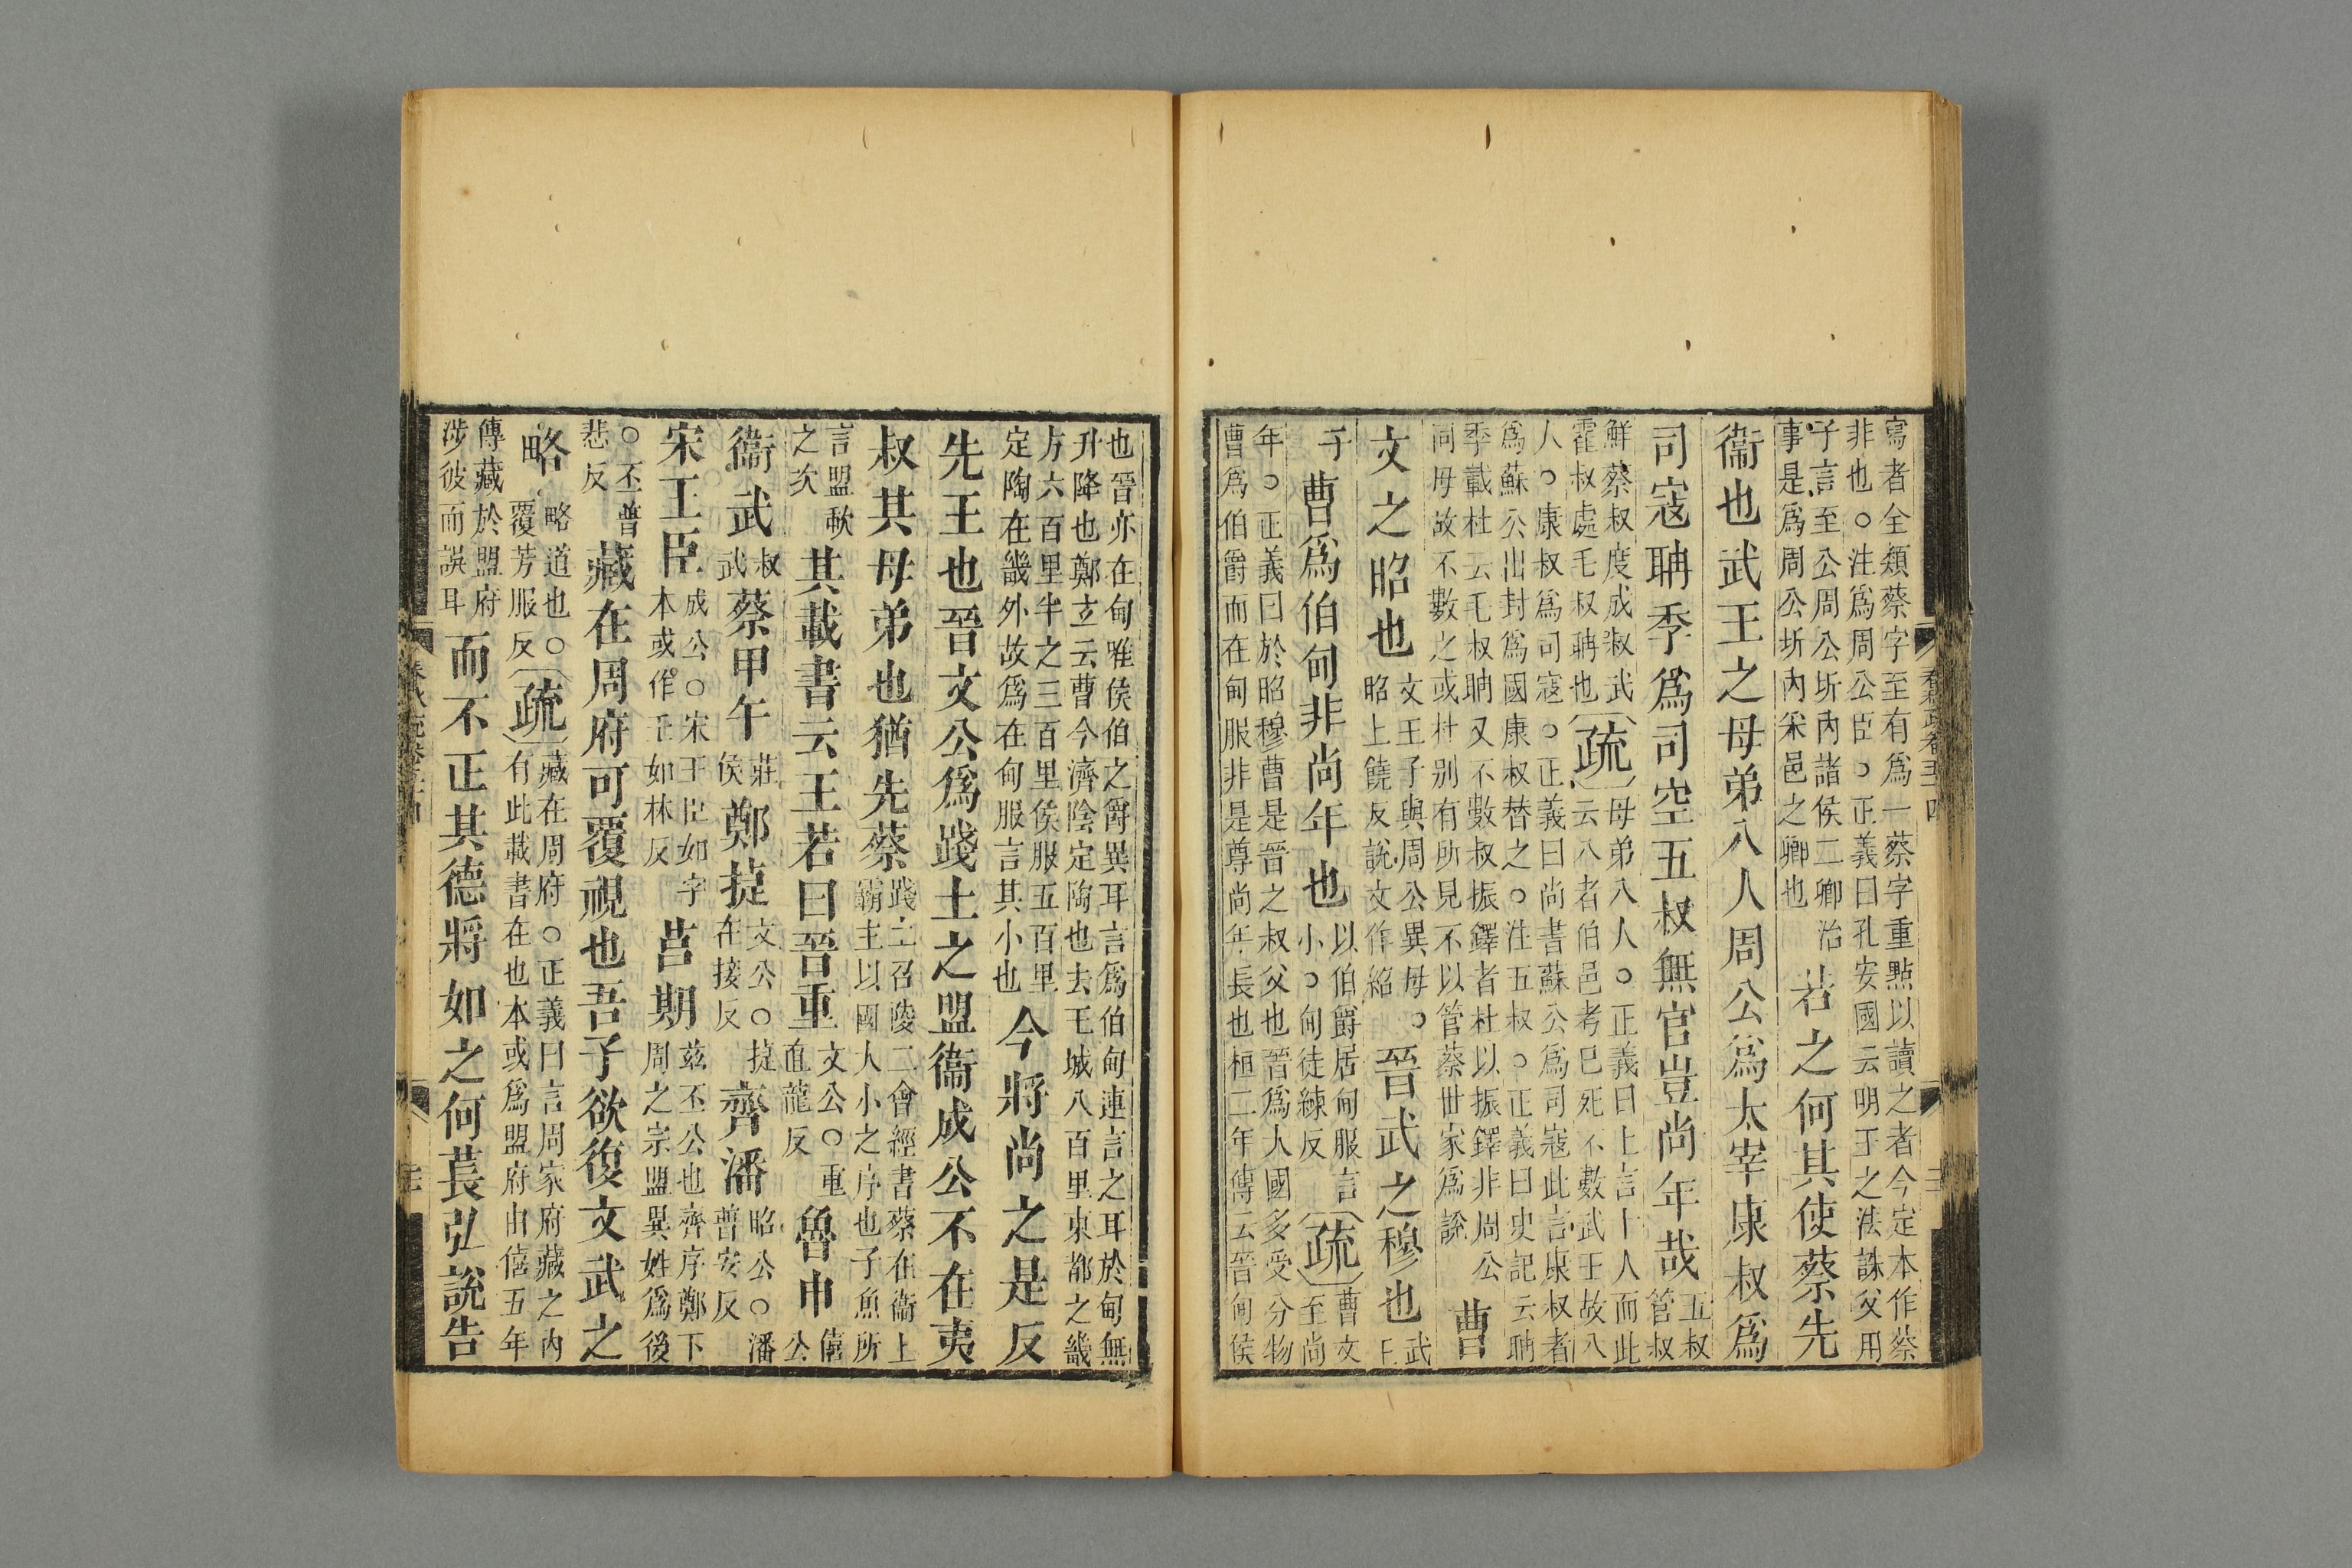 寫者全類蔡字至有爲一蔡字重點以讀之者今定本作蔡
非也○注爲周公臣○正義曰孔安國云明王之法誅父用
子言至公周公圻內諸侯二卿治
事是爲周公圻內采邑之卿也
若之何其使蔡先
衞也武王之母弟八人周公爲太宰康叔爲
司寇聃季爲司空五叔無官豈尚年哉
五叔
管叔
鮮蔡叔度成叔武
霍叔處毛叔聃也
疏
母弟八人○正義曰上言十人而此
云八者伯邑考已死不數武王故八
人○康叔爲司寇○正義曰尚書蘇公爲司寇此言康叔者
爲蘇公出封爲國康叔替之○注五叔○正義曰史記云聃
季載杜云毛叔聃又不數叔振鐸者杜以振鐸非周公
同母故不數之或杜别有所見不以管蔡世家爲說
曹
文之昭也
文王子與周公異母○
昭上饒反說文作紹
晉武之穆也
武
王
子
曹爲伯甸非尚年也
以伯爵居甸服言
小○甸徒練反
疏
曹文
至尚
年○正義曰於昭穆曹是晉之叔父也晉爲大國多受分物
曹爲伯爵而在甸服非是尊尚年長也桓二年傳云晉甸侯
也晉亦在甸唯侯伯之爵異耳言爲伯甸連言之耳於甸無
升降也鄭玄云曹今濟陰定陶也去王城八百里東都之畿
方六百里半之三百里侯服五百里
定陶在畿外故爲在甸服言其小也
今將尚之是反
先王也晉文公爲踐土之盟衞成公不在夷
叔其母弟也猶先蔡
踐土召陵二會經書蔡在衞上
霸主以國大小之序也子魚所
言盟歃
之次
其載書云王若曰晉重
文公○重
直龍反
魯申
僖
公
衞武
叔
武
蔡甲午
莊
侯
鄭捷
文公○捷
在接反
齊潘
昭公○潘
普安反
宋王臣
成公○宋王臣如字
本或作壬如林反
莒期
玆丕公也齊序鄭下
周之宗盟異姓爲後
○丕普
悲反
藏在周府可覆視也吾子欲復文武之
略
略道也○
覆芳服反
疏
藏在周府○正義曰言周家府藏之內
有此載書在也本或爲盟府由僖五年
傳藏於盟府
涉彼而誤耳
而不正其德將如之何萇弘說告